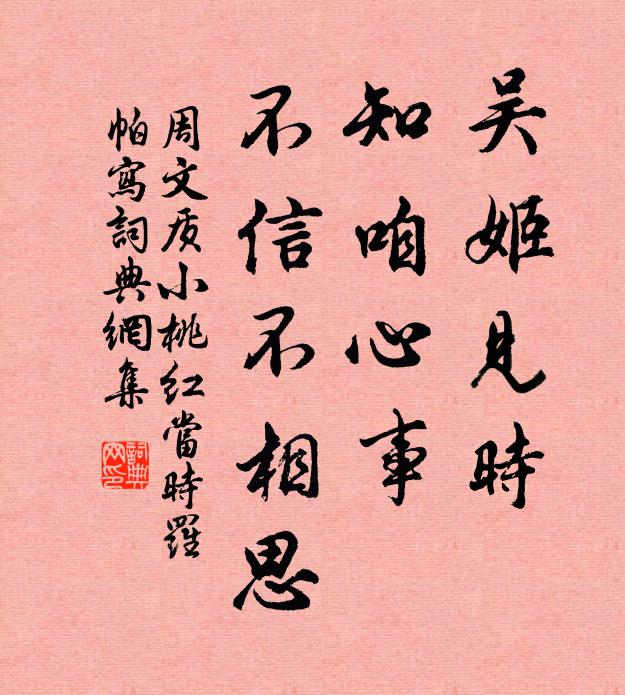 吴姬見時
知咱心事
不信不相思
周文质小桃红當時羅
帕寫詞典網集
詞典
网印